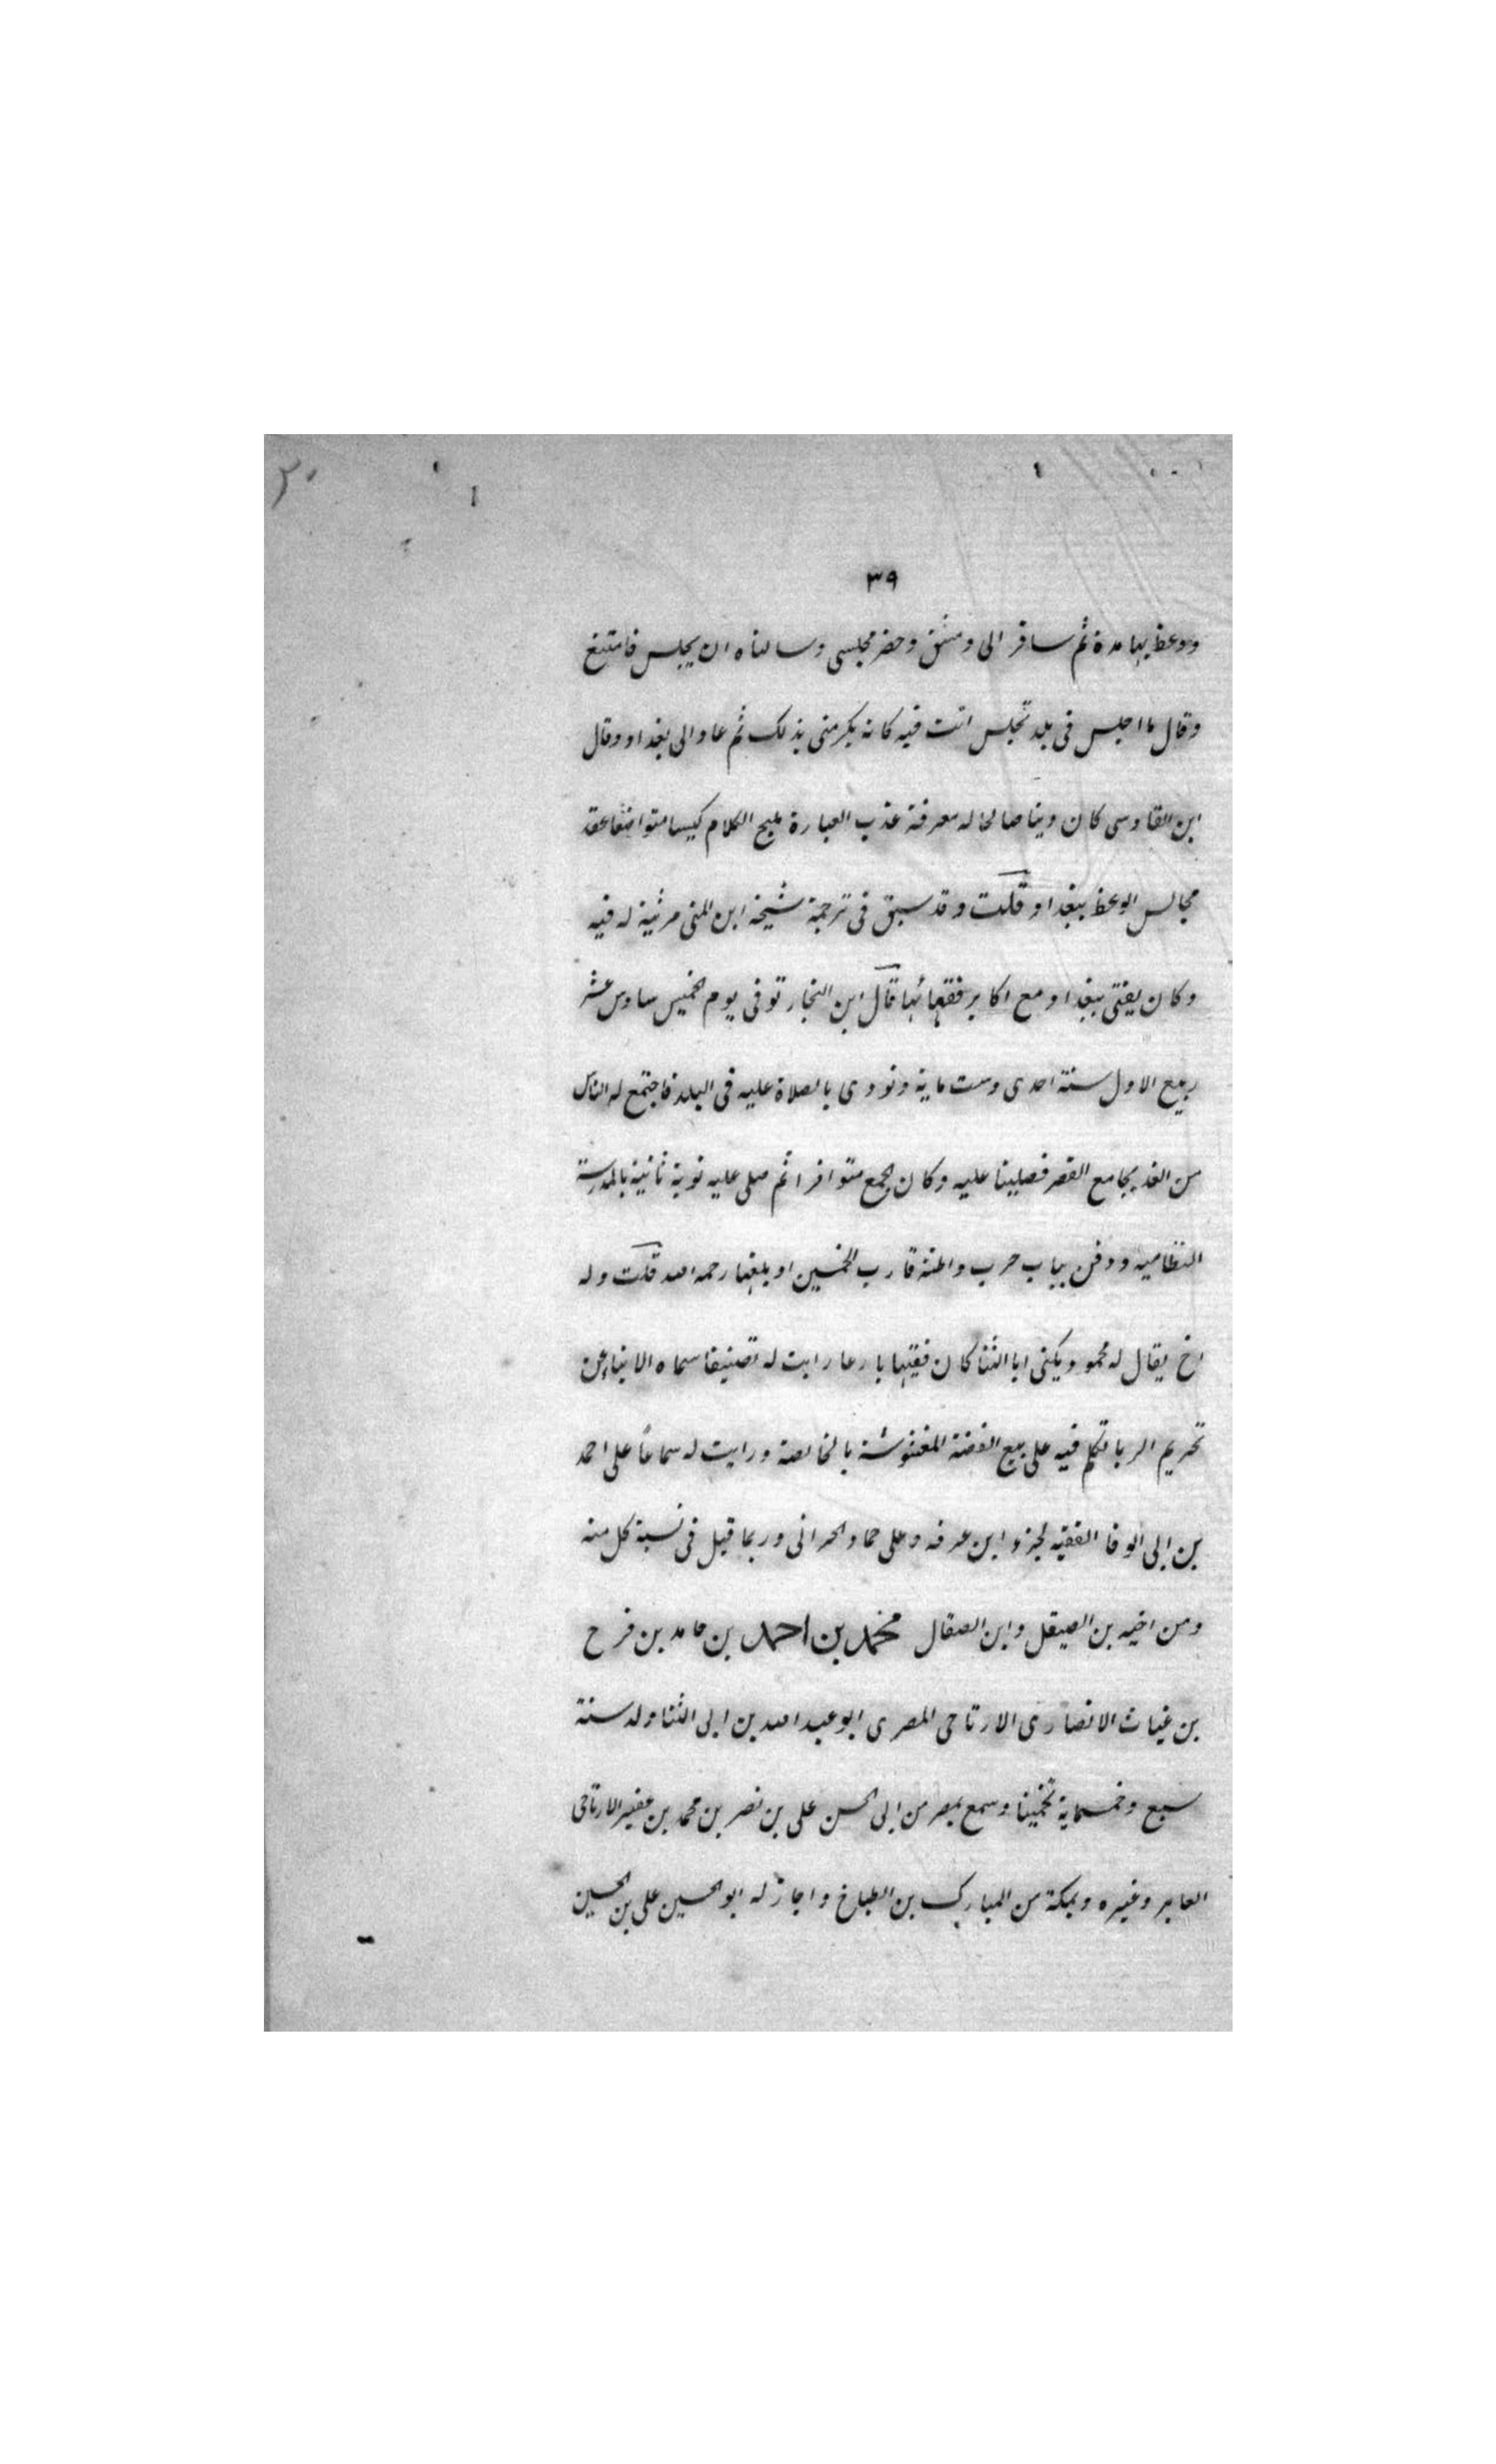 ٣٩
ووعظ بها مدة ثم سافر الى دمشق وحضر مجلسى وسالناه ان يجلس فامتنع
وقال ما اجلس فى بلد تجلس انت فيه كانه يكرمنى بذلك ثم عاد الى بغداد وقال
ابن القادسى كان دينا صالحا له معرفة عذب العبارة مليح الكلام كيسا متواضعا عقد
مجالس الوعظ ببغداد قلت وقد سبق فى ترجمة شيخه ابن المنى مرثية له فيه
وكان يفتى ببغداد مع اكابر فقهائها قال ابن النجار توفى يوم الخميس سادس عشر
ربيع الاول سنة احدى وست ماية ونودى بالصلاة عليه فى البلد فاجتمع له الناس
من الغد بجامع القصر فصلينا عليه وكان الجمع متوافرا ثم صلى عليه نوبة ثانية بالمدرسة
النظاميه ودفن بباب حرب واظنه قارب الخمسين او بلغها رحمه الله قلت وله
اخ يقال له محمود يكنى ابا الثنا كان فقيها بارعا رايت له تصنيفا سماه الانباء عن
تحريم الربا تكلم فيه على بيع الفضة المغشوشة بالخالصة ورايت له سماعًا على احمد
بن ابى الوفا الفقيه لجزء ابن عرفه وعلى حماد الحرانى وربما قيل فى نسبة كل منه
ومن اخيه بن الصيقل وابن الصقال محمد بن احمد بن حامد بن فرح
بن غياث الانصارى الارتاحى المصرى ابو عبد الله بن ابى الثنا ولد سنة
سبع وخمسماية تخمينا وسمع بمصر من ابى الحسن على بن نصر بن محمد بن عفير الارتاحى
العابر وغيره وبمكة من المبارك بن الطباخ واجاز له ابو الحسين على بن الحسين